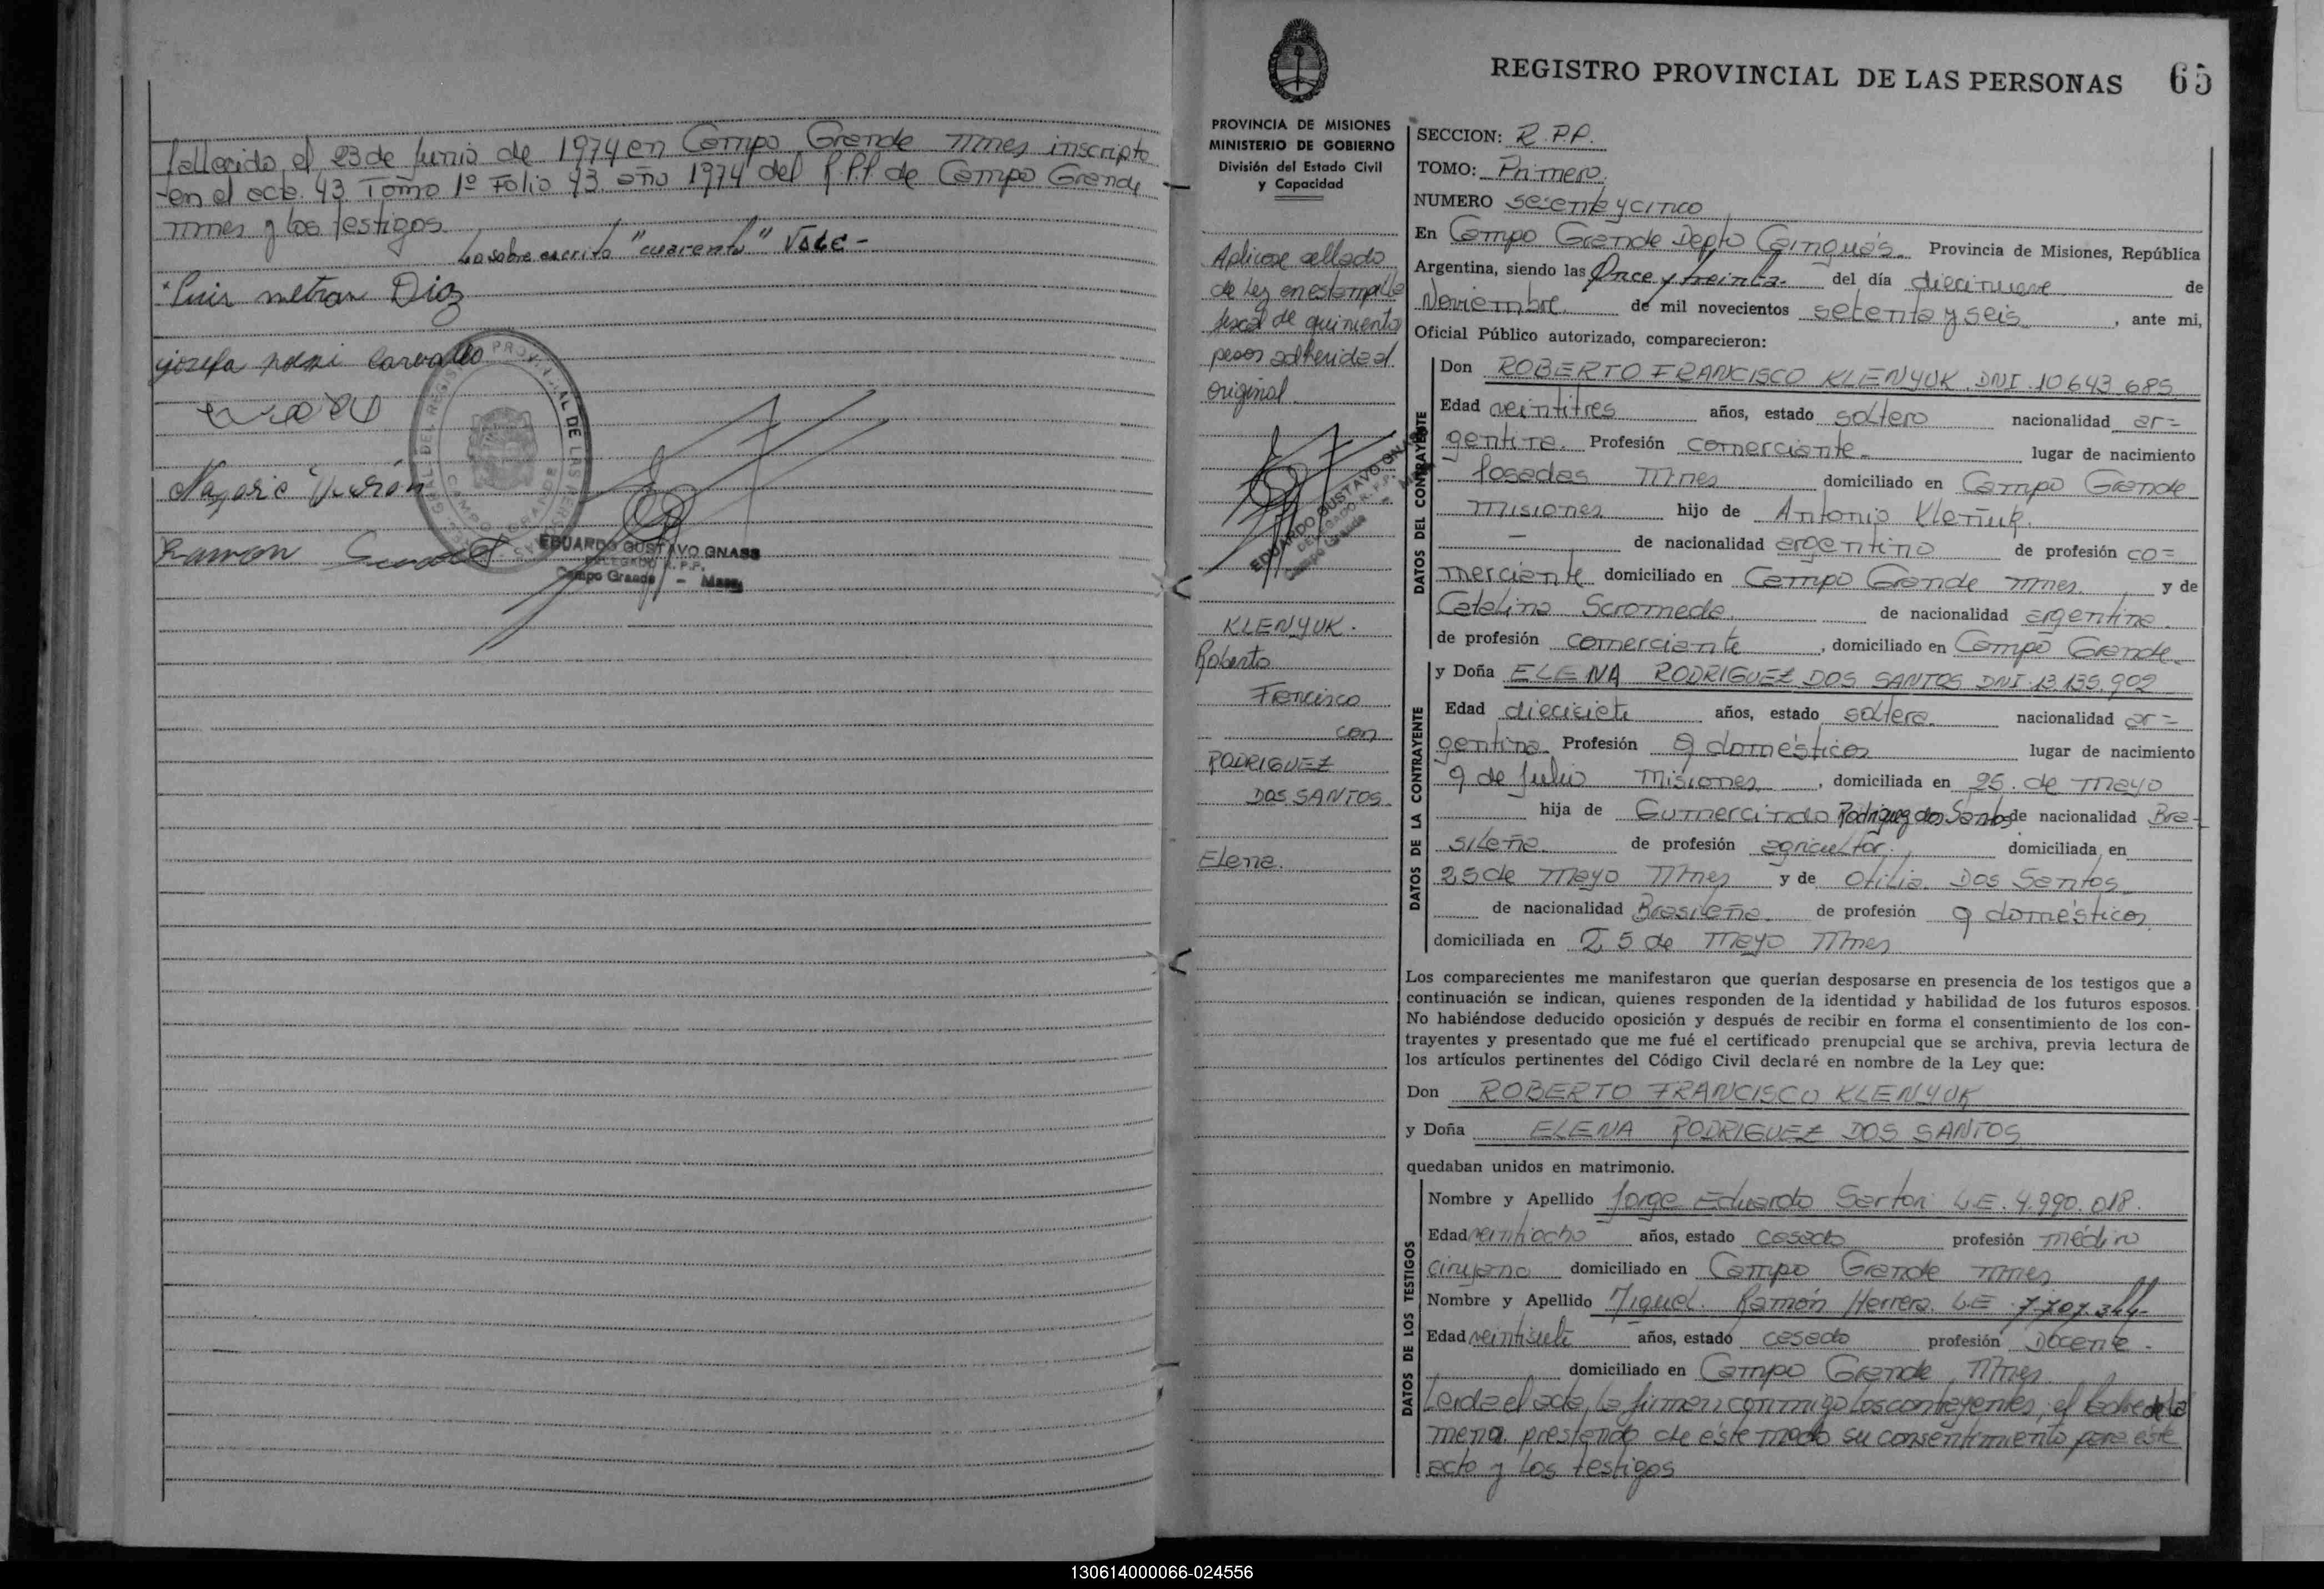 fallecido el 23 de Junio de 1974 en Campo Grande Mnes inscripto
en el acta 43 Tomo 1º Folio 43 año 1974 del R.P.P. de Campo Grande
Mnes y los testigos
Lo sobre escrito "cuarenta" VALE-
Luis Diaz
josefa
Ramon
EDUARDO GUSTAVO GNASS
DELEGADO R. P.P.
Campo Grande - Mnes.
PROVINCIA DE MISIONES
MINISTERIO DE GOBIERNO
División del Estado Civil
y Capacidad
Aplicose sellado
de Ley en estampilla
fiscal de quinientos
pesos adherida al
original.
EDUARDO GUSTAVO GNASS
DELEGADO R. P.P.
Campo Grande
KLENYUK.
Roberto
Francisco
con
RODRIGUEZ
DOS SANTOS
Elena.
REGISTRO PROVINCIAL DE LAS PERSONAS 65
SECCION: R.P.P.
TOMO: Primero.
NUMERO sesenta y cinco
En Campo Grande Depto Cainguás. Provincia de Misiones, República
Argentina, siendo las Once y treinta- del día diecinueve de
Noviembre. de mil novecientos setenta y seis, ante mi,
Oficial Público autorizado, comparecieron:
DATOS DEL CONTRAYENTE
Don ROBERTO FRANCISCO KLENYUK. DNI. 10.643.685
Edad veintitres años, estado soltero nacionalidad ar=
gentina. Profesión comerciante- lugar de nacimiento
Posadas Mnes domiciliado en Campo Grande
Misiones hijo de Antonio Kleñuk.
- de nacionalidad argentino de profesión co=
merciante domiciliado en Campo Grande Mnes. y de
Catalina Scromeda. de nacionalidad argentina.
de profesión comerciante, domiciliado en Campo Grande-
DATOS DE LA CONTRAYENTE
y Doña ELENA RODRIGUEZ DOS SANTOS DNI. 13.135.902
Edad diecisiete años, estado soltera. nacionalidad ar=
gentina. Profesión q domésticos lugar de nacimiento
9 de Julio Misiones, domiciliada en 25. de Mayo
hija de Gumercindo Rodriguez dos Santos de nacionalidad Bra-
sileña. de profesión agricultor. domiciliada en
25 de Mayo Mnes y de Otilia Dos Santos-
de nacionalidad Brasileña. de profesión q domésticos
domiciliada en 25 de Mayo Mnes
Los comparecientes me manifestaron que querían desposarse en presencia de los testigos que a
continuación se indican, quienes responden de la identidad y habilidad de los futuros esposos.
No habiéndose deducido oposición y después de recibir en forma el consentimiento de los con-
trayentes y presentado que me fué el certificado prenupcial que se archiva, previa lectura de
los artículos pertinentes del Código Civil declaré en nombre de la Ley que:
Don ROBERTO FRANCISCO KLENYUK
y Doña ELENA RODRIGUEZ DOS SANTOS
quedaban unidos en matrimonio.
DATOS DE LOS TESTIGOS
Nombre y Apellido Jorge Eduardo Sartori L.E. 4.990.018.
Edad veintiocho años, estado casado profesión médico
cirujano domiciliado en Campo Grande Mnes
Nombre y Apellido Miguel Ramón Herrera. L.E 7.707.344-
Edad veintisiete años, estado casado profesión Docente.
domiciliado en Campo Grande Mnes
Leida el acta, la firman conmigo los contrayentes, el Padre de la
menor prestando de este modo su consentimiento para este
acto y los testigos
130614000066-024556